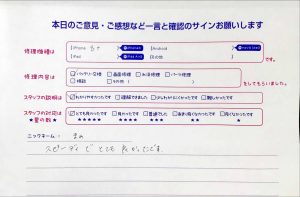 本日のご意見・ご感想など一言と確認のサインお願いします
修理機種は
iPhone
Android
iPad
その他
です。
修理内容は
バッテリー交換
画面修理
水没修理
パーツ修理
相談
その他
をしてもらいました。
スタッフの説明は
わかりやすかったです
理解できました
少しわかりにくかったです
難しかったです
スタッフの対応は
★星の数★
とても良かったです
良かったです
普通でした
良くなかったです
★★★★★
★★★★
★★★
★★
★
ニックネーム:
スピーディで とても よかったです。